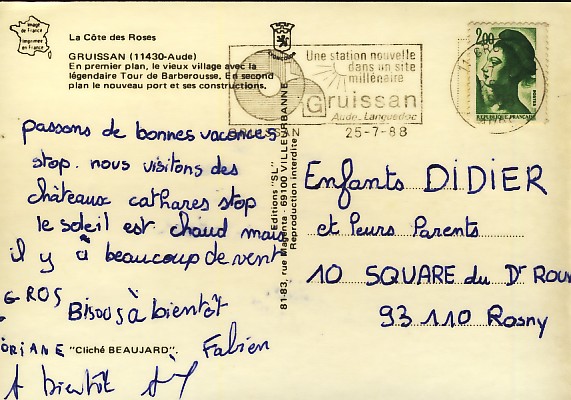 Image
de France
Imprimée
en France
La Côte des Roses
GRUISSAN (11430-Aude)
En premier plan, le vieux village avec la
légendaire Tour de Barberousse. En second
plan le nouveau port et ses constructions.
passons de bonnes vacances
stop. nous visitons des
châteaux cathares stop
le soleil est chaud mais
il y à beaucoup de vent
GROS
Bisous à bientôt
ORIANE "Cliché BEAUJARD". Fabien
A bientôt
Editions "SL"
81-83, rue Magenta - 69100 VILLEURBANNE
Reproduction interdite
Une station nouvelle
dans un site
millénaire
Gruissan
Aude-Languedoc
GRUISSAN
25-7-88
2,00
REPUBLIQUE FRANÇAISE
Enfants DIDIER
et leurs Parents
10 SQUARE du Dr ROUX
93 110 Rosny